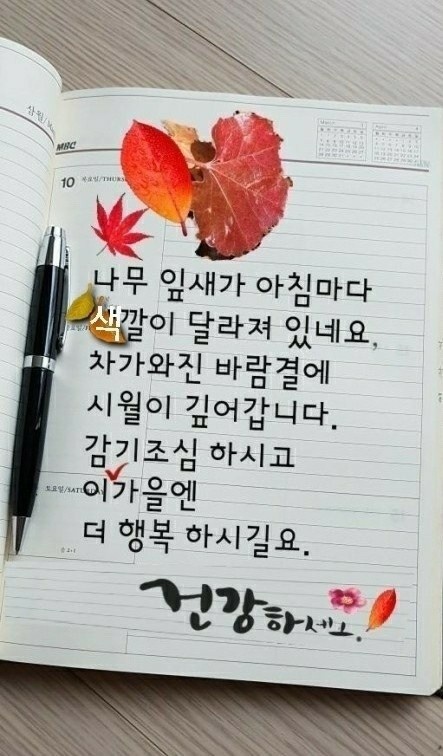 삼월/M
MBC
10 목요일/THURS
나무 잎새가 아침마다
색깔이 달라져 있네요,
차가와진 바람결에
시월이 깊어갑니다.
감기조심 하시고
토요일/SATURDAY
이가을엔
더 행복 하시길요.
건강하세요.